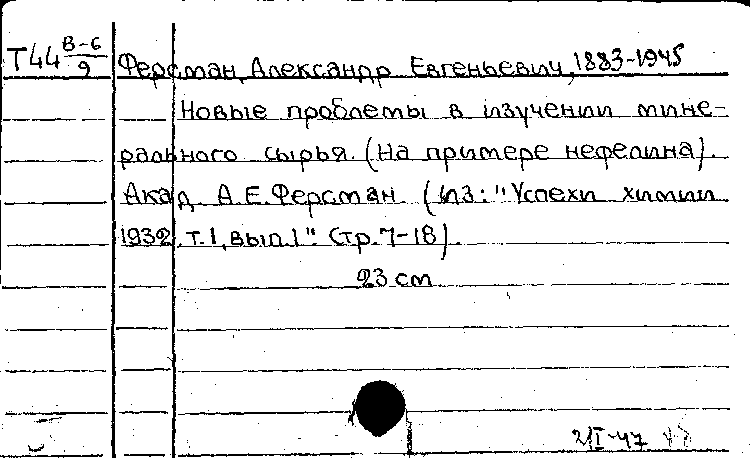 Т44 В-6/9 Ферсман, Александр Евгеньевич, 1883-1945
Новые проблемы в изучении мине-
рального сырья. (На примере нефелина).
Акад. А.Е.Ферсман. (Из: "Успехи химии
1932. т.1, вып.1". Стр.7-18).
23 cm